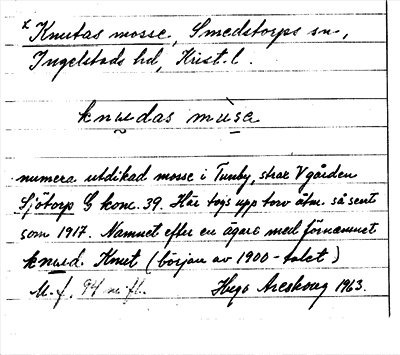 x Knutas mosse, Smedstorps sn.,
Ingelstads hd, Krist. l.
knudas mùsa
numera utdikad mosse i Tunby, strax V gården
Sjötorp G konc. 39. Här togs upp torv åtm. så sent
som 1917. Namnet efter en ägare med förnamnet
knud. Knut (början av 1900-talet)
M. f. 94 m. fl. Hugo Areskoug 1963.